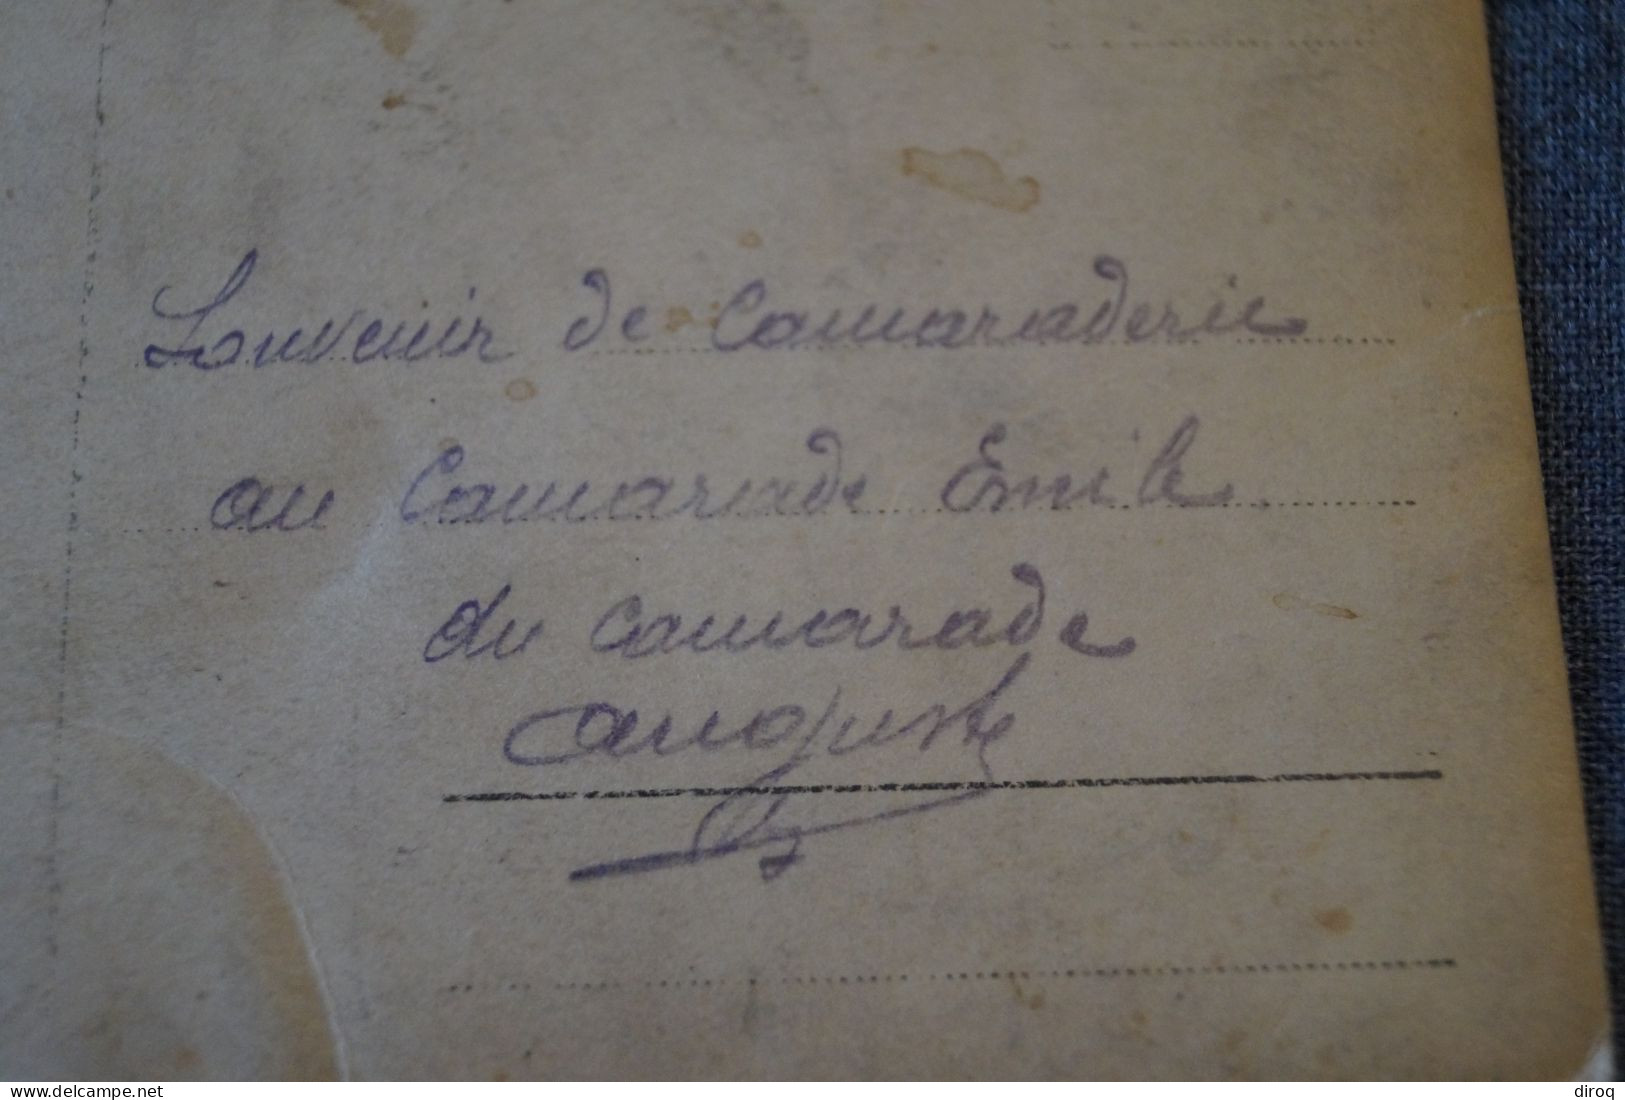 Souvenir de Camaraderie
au Camarade Emile
du Camarade
auguste
www.delcampe.net
diroq